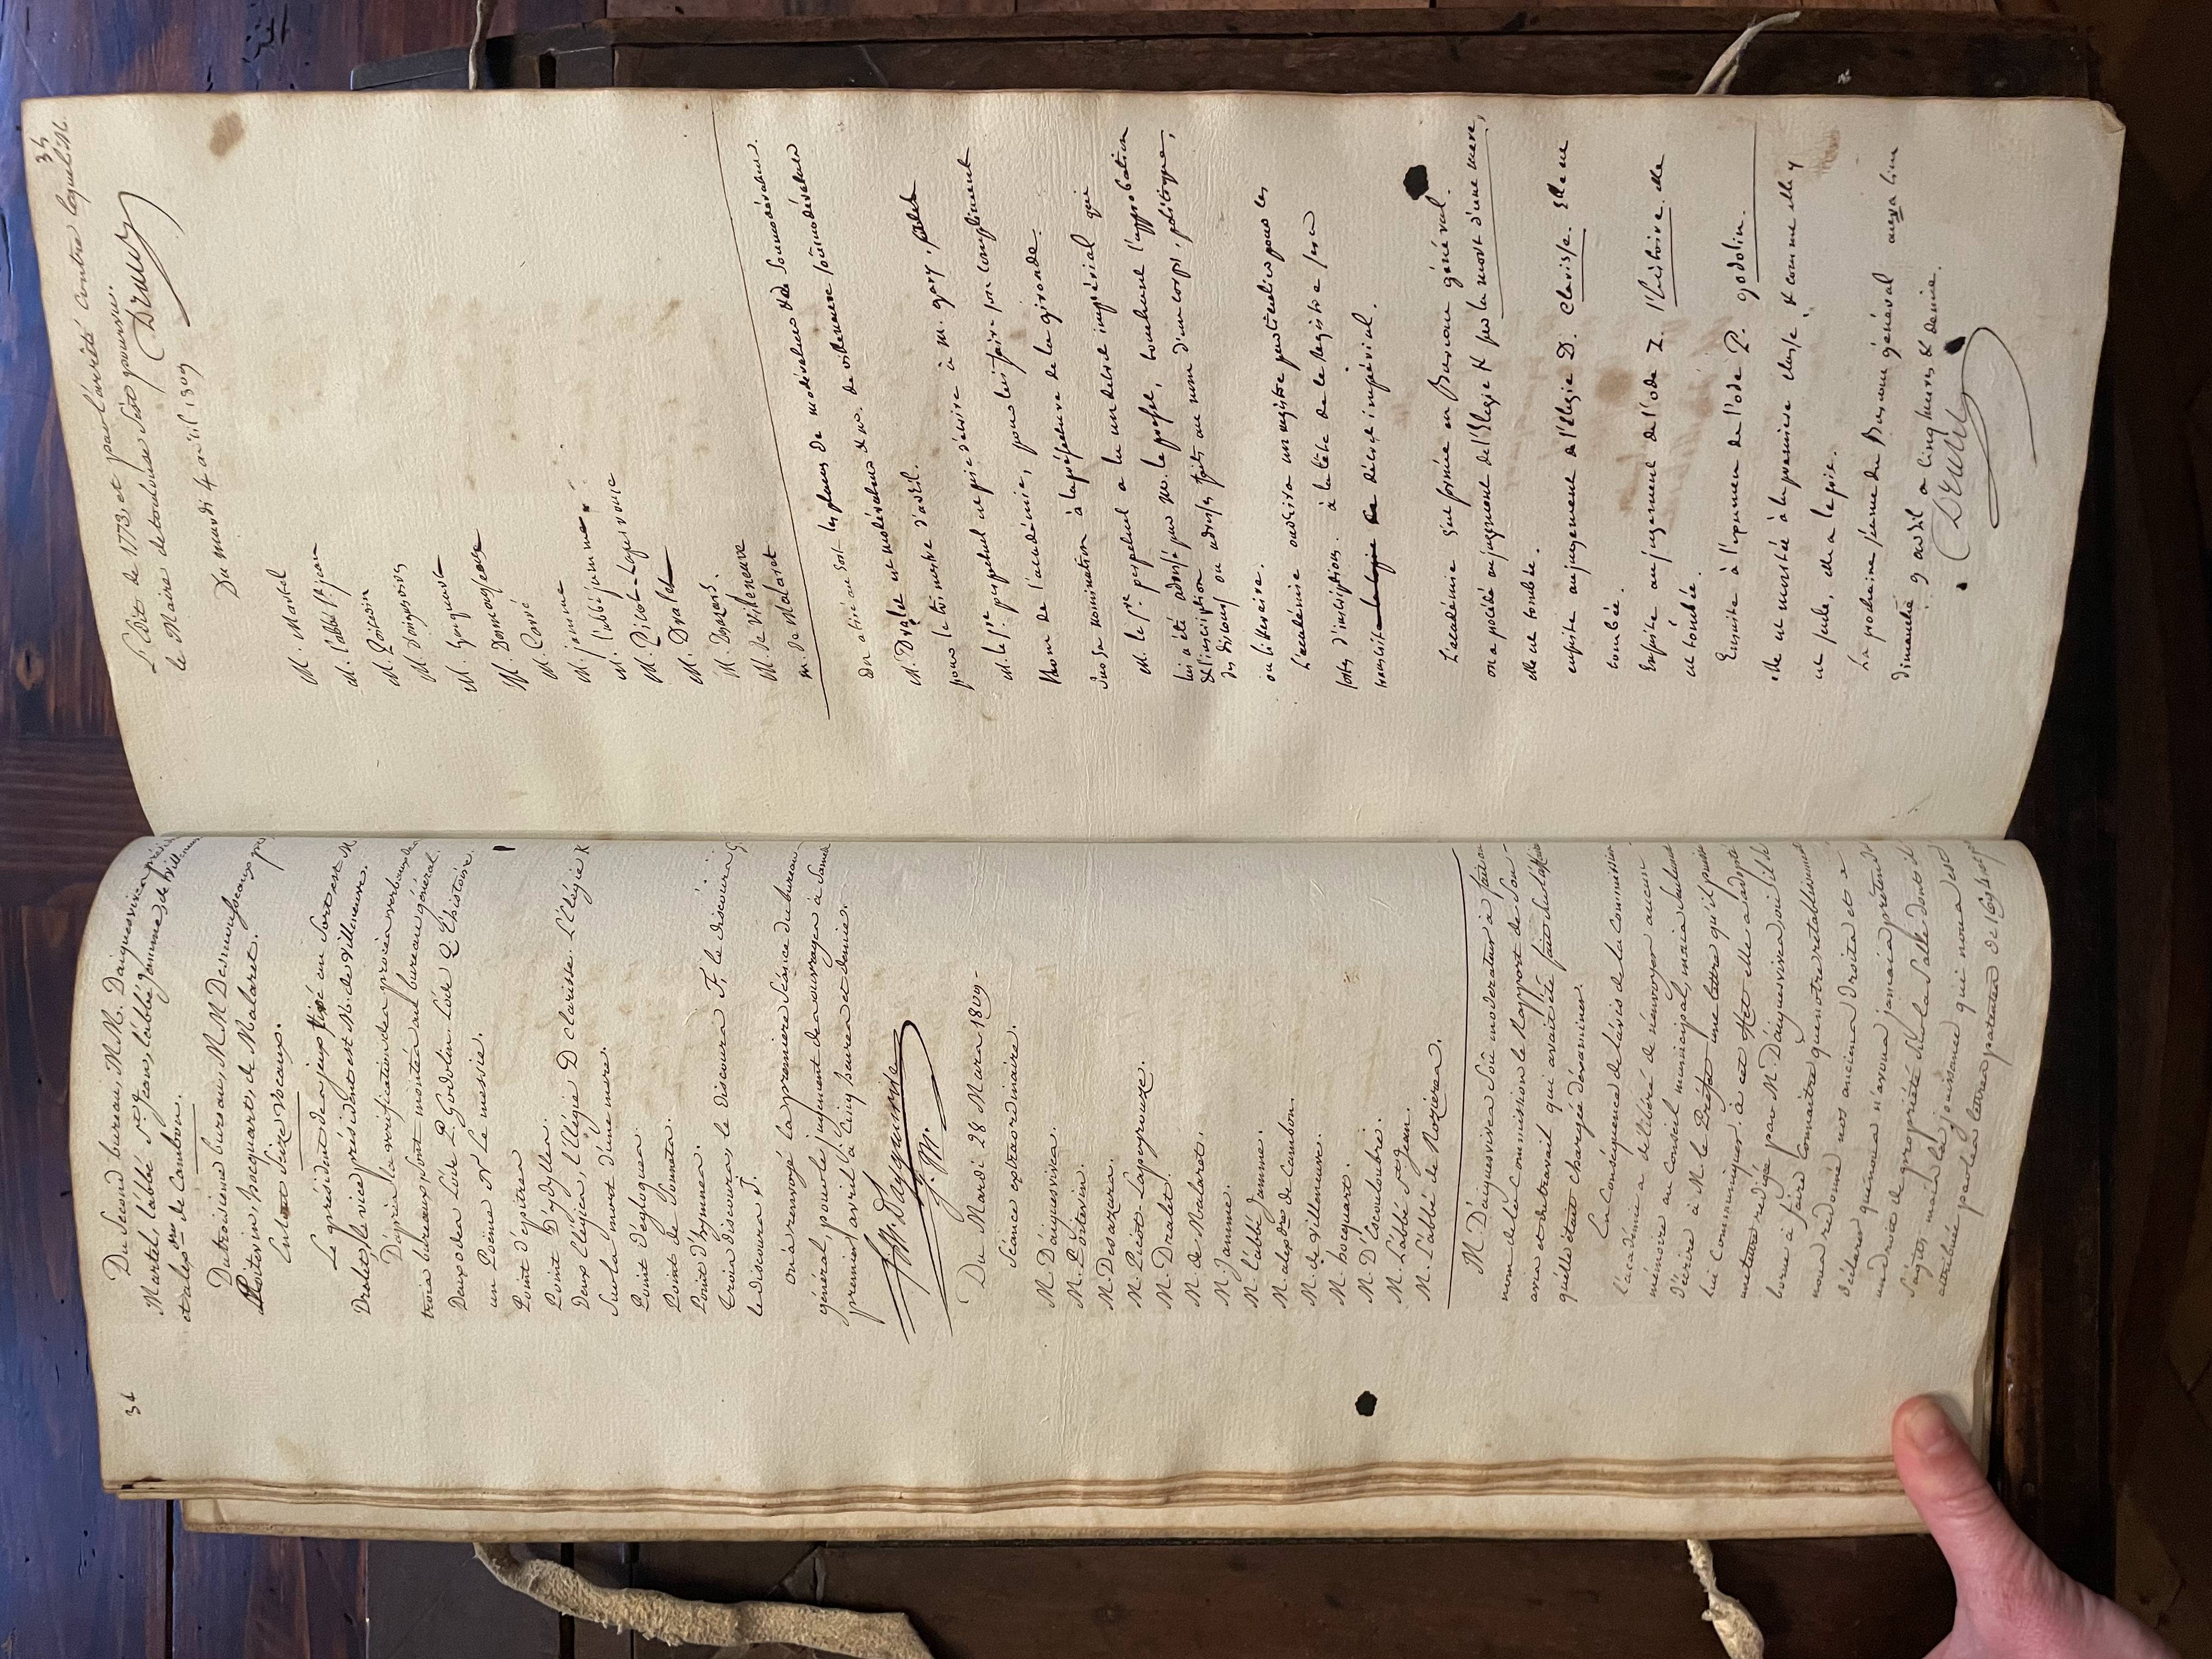 34
Du Second bureau, M.M. Daiguesvives
Martel, l'abbé St. jean, l'abbé jamme, de Vill
et alexdre de Cambon.
Du troisieme bureau, M.M. Desmousseaux
Poitevin, hocquart, de Malaret.
En tout Seize Vocaux.
Le président des jeux tiré au Sort est M
Dralet, le vice président est M. de Villeneuve.
D'après la vérification des procès verbaux des
trois bureaux, sont montés au bureau général.
Deux odes L'ode P. Godolin L'ode Z L'histoire.
un Poëme N Le messie.
Point d'epitres
Point D'idylles.
Deux Elegies, L'Elégie D Clarisse. L'Elégie K
Sur la mort d'une mere.
Point d'églogues.
Point de Sonnets.
Point d'hymnes.
Trois discours, le discours F. le discours G
le discours J.
on a renvoyé la premiere Séance du bureau
général, pour le jugement des ouvrages à Samedi
premier avril à Cinq heures et demie.
Du Mardi 28 Mars 1809.
Séance extraordinaire.
M. Daiguesvives.
M. Poitevin.
M. Desazars.
M. Picot-Lapeyrouze.
M. Dralet.
M. de Malaret.
M. Jamme.
M. l'abbé Jamme.
M. alexdre de Cambon.
M. de Villeneuve.
M. hocquart.
M. D'Escouloubre.
M. L'abbé St. Jean.
M. L'abbé de Rozieres.
M. Daiguesvives Soûmoderateur a fait au
nom de la Commission le Rapport de Son
avis et du travail qui avait été fait sur les
quelle était chargée d'examiner.
En Conséquence de l'avis de la Commission
l'académie a délibéré de n'envoyer aucun
mémoire au Conseil municipal, mais seulement
d'écrire à M. le Préfet une lettre qu'il puisse
lui Communiquer. à cet effet elle a adopté
la lettre redigée par M. Daiguesvives où il se
borne à faire Connaitre que notre rétablissement
nous a redonné nos anciens Droits et à
déclarer que nous n'avons jamais prétendu
un droit de propriété Sur la Salle dont il
S'agit, mais la jouissance qui nous est
attribuée par les lettres patentes de 1694
35
L'Edit de 1773, et par l'arrêté Contre lequel M.
le Maire de toulouse S'est pourvu.
Dralet
Du mardi 4 avril 1809
M. Martel
M. l'abbé St. jean
M. Poitevin
M. d'aiguesvives
M. hocquart
M. Desmousseaux
M. Carré
M. jamme
M. l'abbé jamme
M. Picot-Lapeyrouse
M. Dralet
M. Desazars.
M. de Villeneuve
M. de Malaret
On a tiré au Sort les places de modérateur & de Sousmodérateur.
M. Dralet est modérateur & M. de villeneuve soûsmodérateur
pour le trimestre d'avril.
M. le Sre. perpetuel est prié d'écrire à M. gary
nom de l'académie, pour lui faire son compliment
sur sa nomination à la préfecture de la gironde.
M. le Sre. perpetuel a lu un décret impérial qui
lui a été adressé par M. le préfet, touchant l'approbation
des discours ou adresses faits au nom d'un corps, politique,
ou litteraire.
L'académie ouvrira un registre particulier pour ces
sortes d'inscriptions. à la tête de ce registre sera
transcrit le décret impérial.
L'académie s'est formée en Bureau général.
on a procédé au jugement de l'Elegie K sur la mort d'une mere,
elle est tombée.
ensuite au jugement de l'Elegie D. Clarisse. Elle est
tombée.
Ensuite au jugement de l'ode Z. l'histoire. elle
est tombée.
Ensuite à l'examen de l'ode P. godolin.
elle est montée à la premiere classe, & comme elle y
est seule, elle a le prix.
La prochaine séance du Bureau général aura lieu
dimanche 9 avril a cinq heures & demie.